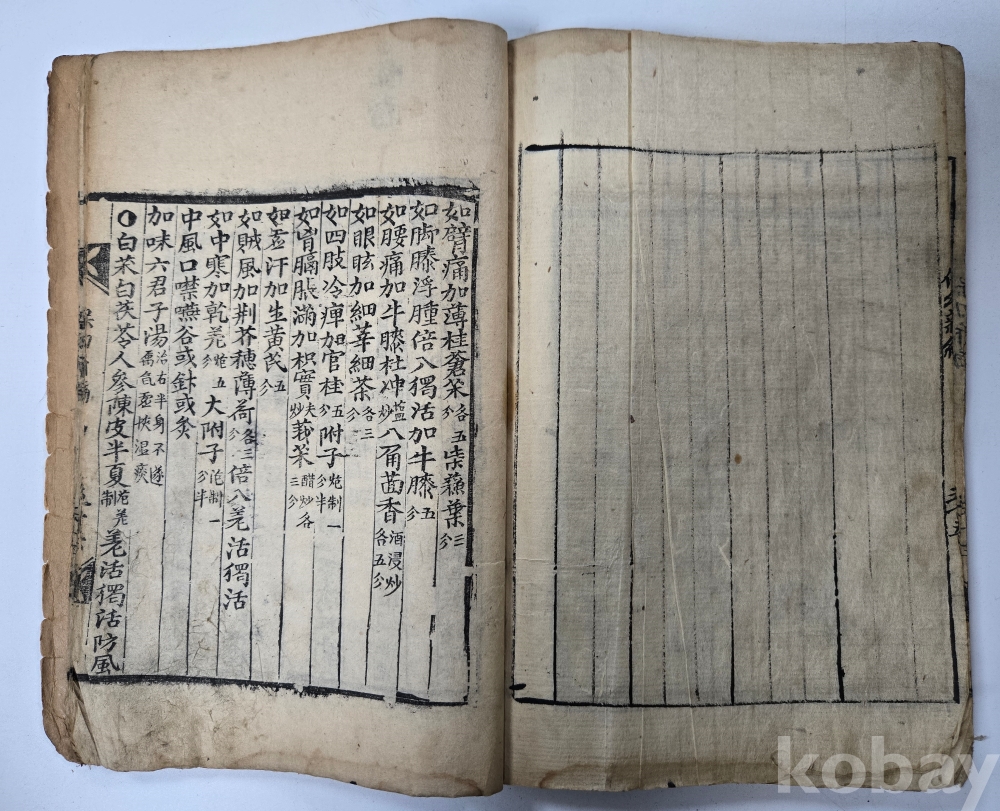 如臂痛加薄桂蒼朮各五分柴蘓葉三分
如脚膝浮腫倍入獨活加牛膝五分
如腰痛加牛膝杜冲塩炒八角茴香酒浸炒各五分
如眼眩加細辛細茶各三分
如四肢冷痺加官桂五分附子炮制一分半
如胷膈脹滿加枳實夫炒莪朮醋炒各三分
如虛汗加生黄芪五分
如賊風加荆芥穗薄荷各三分倍入羌活獨活
如中寒加乾羌炮五分大附子炮制一分半
中風口噤嚥谷或針或灸
加味六君子湯治右半身不遂属气虛挾湿痰
白朮白茯苓人參陳皮半夏羌制羌活獨活防風
kobay